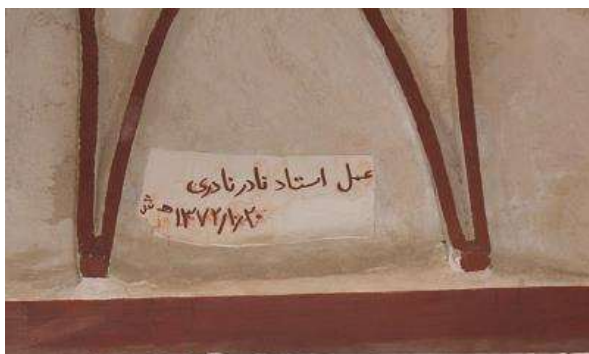 عمل استاد نادر نادری
۱۳۷۲/۱/۲۰ هـ ش